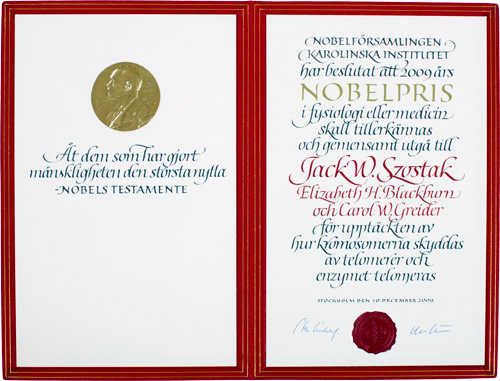 Åt dem som har gjort
mänskligheten den största nytta
-NOBELS TESTAMENTE
NOBELFÖRSAMLINGEN
KAROLINSKA INSTITUTET
har beslutat att 2009 års
NOBELPRIS
i fysiologi eller medicin
skall tillerkännas
och gemensamt utgå till
Jack W. Szostak
Elizabeth H. Blackburn
och Carol W. Greider
för upptäckten av
hur kromosomerna skyddas
av telomerer och
enzymet telomeras
STOCKHOLM DEN 10 DECEMBER 2009